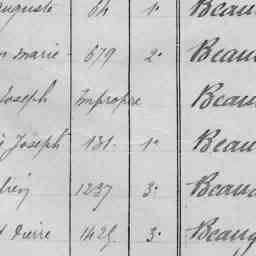 Auguste 64 1° Beau
Marie 679 2° Beau
Joseph Impropre Beau
Joseph 131. 1° Beau
1237 3° Beau
Pierre 1425 3° Beau